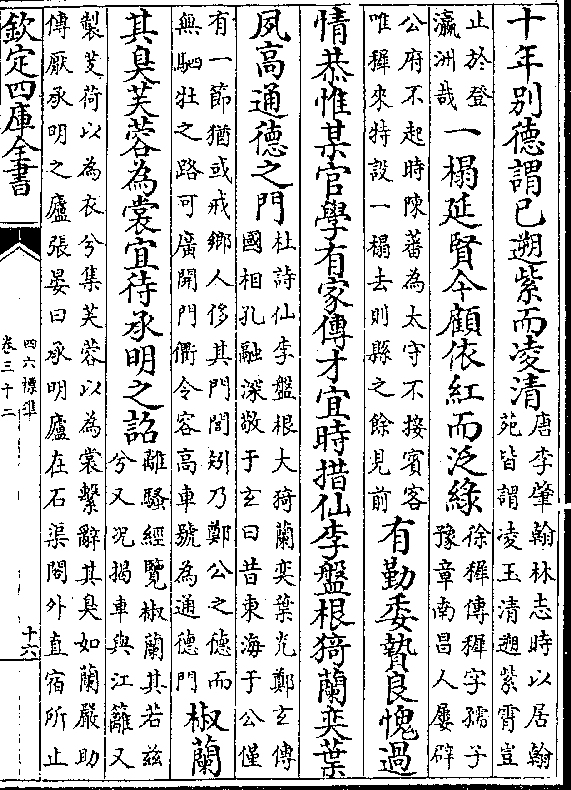 十年別德謂已遡紫而凌清唐李肇翰林志時以居翰
苑皆謂凌玉清遡紫霄豈
止於登
瀛洲哉一榻延賢今顧依紅而泛緑徐穉傳穉字孺子
豫章南昌人屢辟
公府不起時陳蕃為太守不接賓客
唯穉來特設一榻去則縣之餘見前有勤委贄良愧過
情恭惟某官學有家傳才宜時措仙李盤根猗蘭奕葉
夙高通德之門杜詩仙李盤根大猗蘭奕葉光鄭玄傳
國相孔融深敬于玄曰昔東海于公僅
有一節猶或戒鄉人侈其門閭矧乃鄭公之德而
無駟牡之路可廣開門衢令容高車號為通德門椒蘭
其臭芙蓉為裳宜待承明之詔離騷經覽椒蘭其若兹
兮又況揭車與江離又
製芰荷以為衣兮集芙蓉以為裳繫辭其臭如蘭嚴助
傳厭承明之廬張晏曰承明廬在石渠閣外直宿所止
欽定四庫全書
四六標準
卷三十二
十六